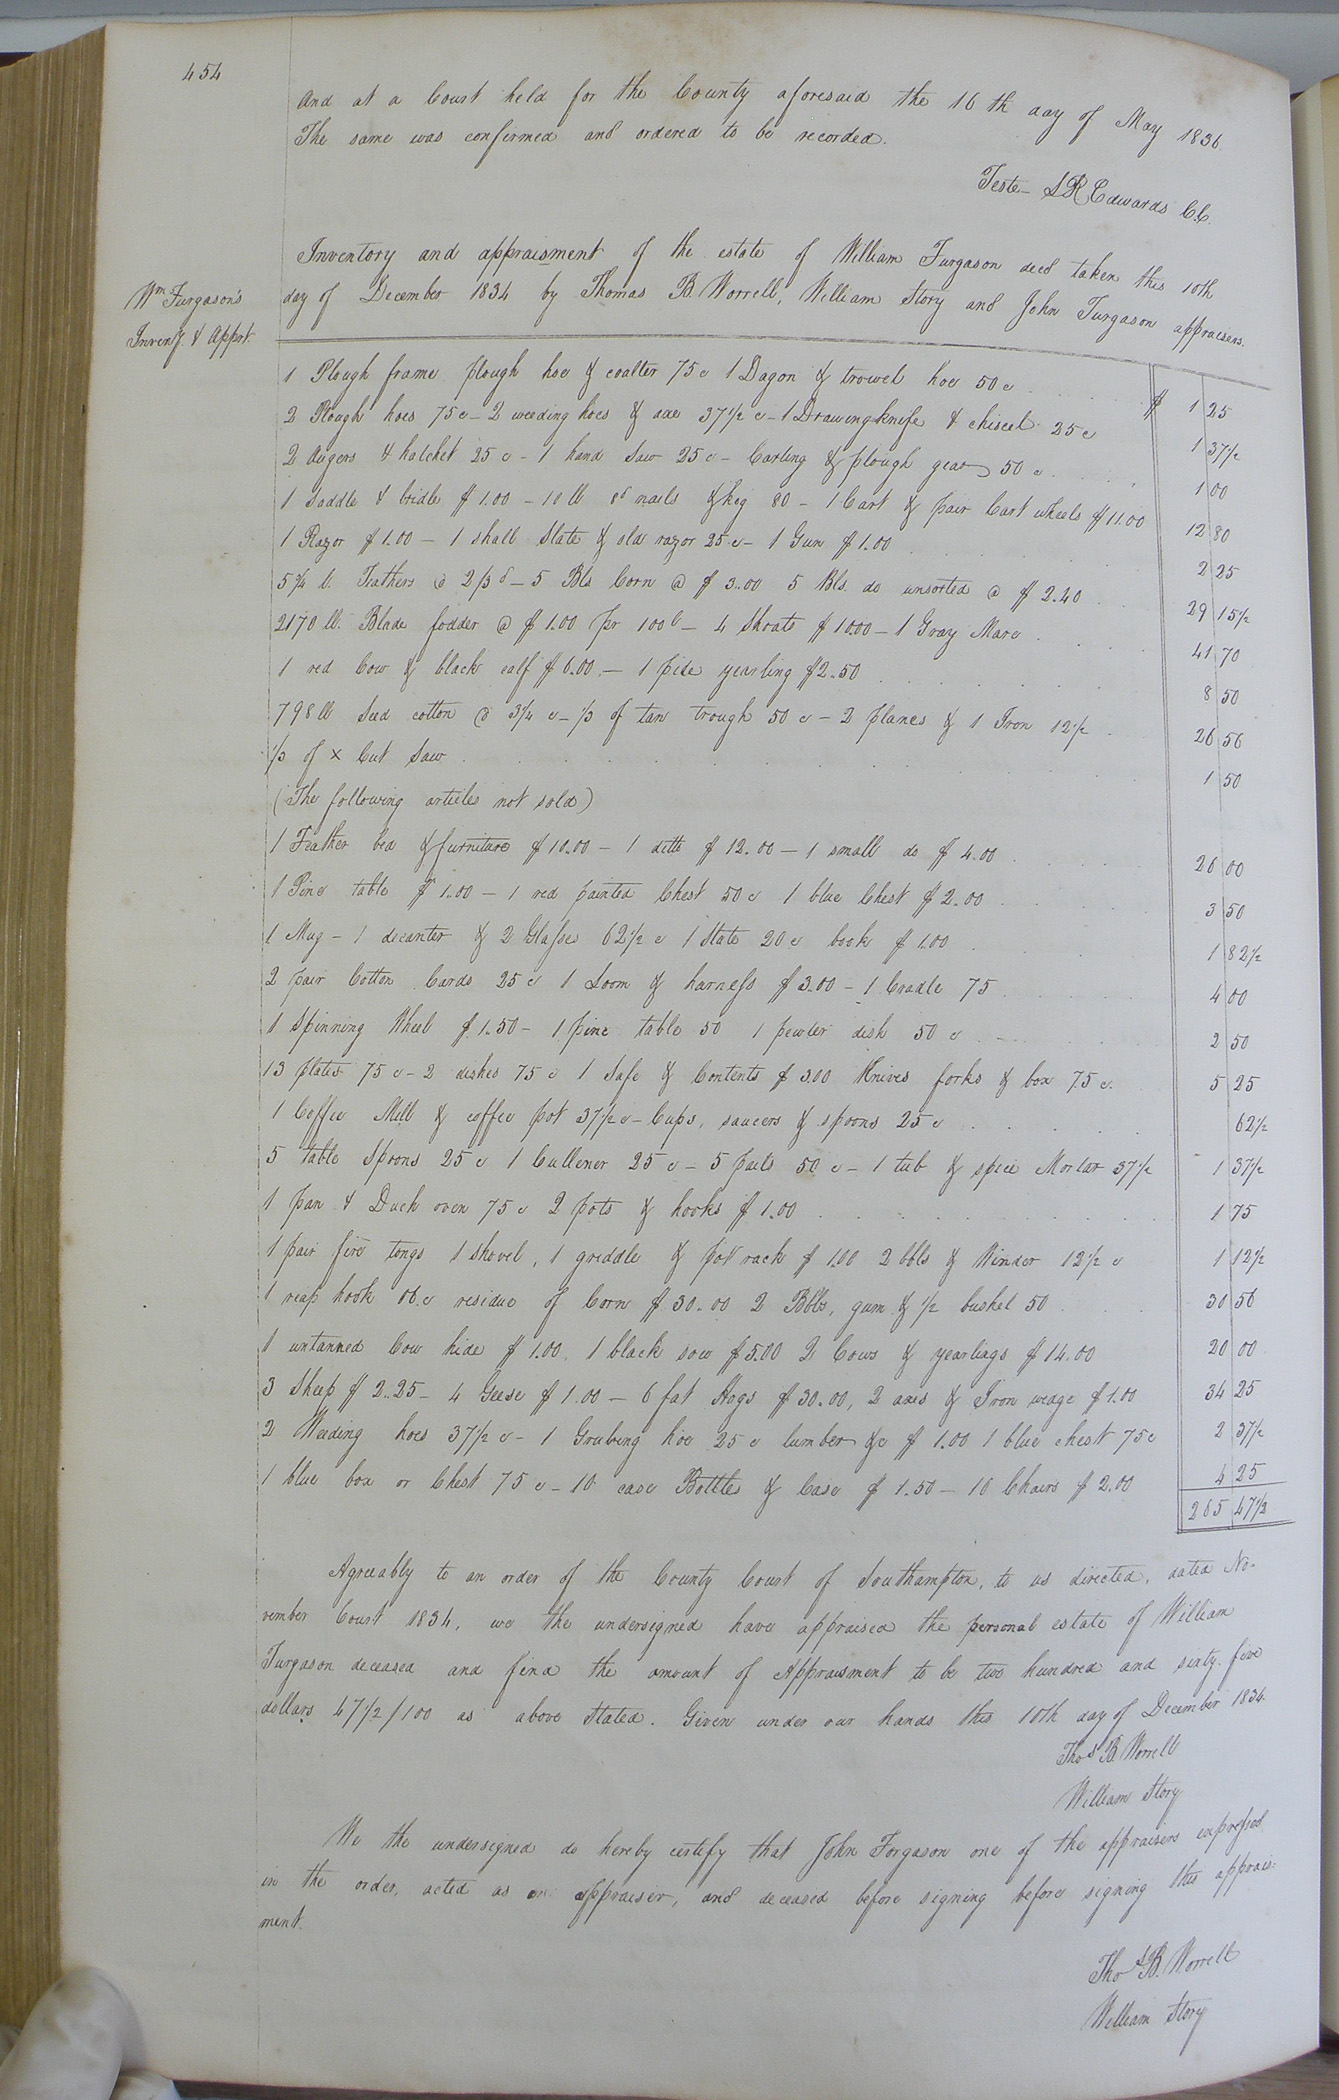 454
And at a Court held for the County aforesaid the 16th day of May 1836.
The same was confermed and ordered to be recorded.
Teste- L R Edwards C.C.
Wm Furgason's
Inventy. & Apprt.
Inventory and appraisment of the estate of William Furgason decd taken this 10th
day of December 1834 by Thomas B. Worrell, William Story and John Furgason appraisers.
1 Plough frame plough hoe & coalter 75c 1 Dagon & trowel hoe 50c $ 1 25
2 Plough hoes 75c - 2 weeding hoes & axe 37 1/2 c - 1 Drawing knife & chisel 25c 1 37 1/2
2 Augers & hatchet 25c - 1 hand Saw 25c - Carting & plough gear 50c 1 00
1 Saddle & bridle $1.00 - 10 lb 8d nails & keg 80 - 1 Cart & pair Cart wheels $11.00 12 80
1 Razor $1.00 - 1 small Slate & old razor 25c - 1 Gun $1.00 2 25
5 3/4 lb. Feathers @ 2/3d - 5 Bls Corn @ $3.00 5 Bls. do unsorted @ $2.40 29 15 1/2
2170 lb. Blade fodder @ $1.00 pr 100 lb - 4 Shoats $10.00 - 1 Gray Mare 41 70
1 red Cow & black calf $6.00 - 1 pide yearling $2.50 8 50
798 lb Seed cotton @ 3 1/4 c - 1/3 of tan trough 50c - 2 planes & 1 Iron 12 1/2 26 56
1/3 of x Cut Saw 1 50
(The following articles not sold)
1 Feather bed & furniture $10.00 - 1 ditto $12.00 - 1 small do $4.00 26 00
1 Pine table $1.00 - 1 red painted Chest 50c 1 blue Chest $2.00 3 50
1 Mug - 1 decanter & 2 Glasses 62 1/2 c 1 Slate 20c book $1.00 1 82 1/2
2 pair Cotton Cards 25c 1 Loom & harness $3.00 - 1 Cradle 75 4 00
1 Spinning Wheel $1.50 - 1 pine table 50 1 pewter dish 50c 2 50
13 plates 75c - 2 dishes 75c 1 Safe & Contents $3.00 Knives forks & box 75c. 5 25
1 Coffee Mill & coffee pot 37 1/2 c - Cups, saucers & spoons 25c 62 1/2
5 table Spoons 25c 1 Cullener 25c - 5 pails 50c - 1 tub & spice Mortar 37 1/2 1 37 1/2
1 pan & Duch oven 75c 2 pots & hooks $1.00 1 75
1 pair fire tongs 1 shovel, 1 griddle & pot rack $1.00 2 bbls & Winder 12 1/2 c 1 12 1/2
1 reap hook 06c residue of Corn $30.00 2 Bbls, gum & 1/2 bushel 50 30 56
1 untanned Cow hide $1.00, 1 black sow $5.00 2 Cows & yearlings $14.00 20 00
3 Sheep $2.25 - 4 Geese $1.00 - 6 fat Hogs $30.00, 2 axes & Iron wedge $1.00 34 25
2 Weeding hoes 37 1/2 c - 1 Grubing hoe 25c lumber &c $1.00 1 blue chest 75c 2 37 1/2
1 blue box or Chest 75c - 10 case Bottles & Case $1.50 - 10 Chairs $2.00 4 25
265 47 1/2
Agreeably to an order of the County Court of Southampton, to us directed, dated No-
vember Court 1834, we the undersigned have appraised the personal estate of William
Furgason deceased and find the amount of Appraisment to be two hundred and sixty five
dollars 47 1/2/100 as above stated. Given under our hands this 10th day of December 1834.
Thos B. Worrell
William Story
We the undersigned do hereby certify that John Forgason one of the appraisers expressed
in the order, acted as an appraiser, and deceased before signing before signing this apprais-
ment.
Thos B. Worrell
William Story